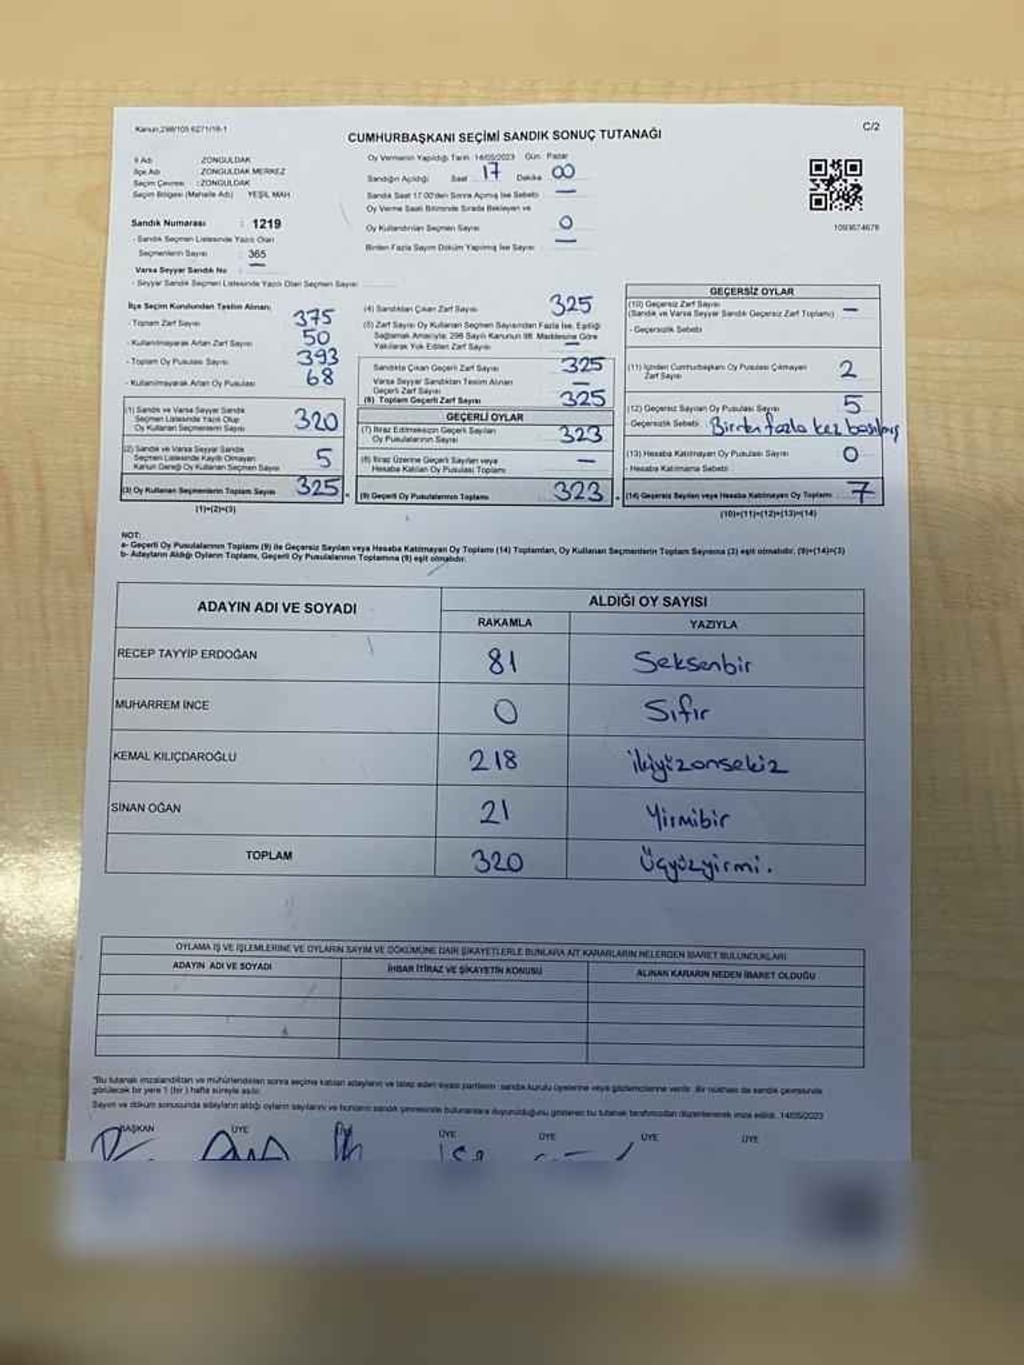 Kanun:298/105 6271/16-1
C/2
CUMHURBAŞKANI SEÇİMİ SANDIK SONUÇ TUTANAĞI
İl Adı : ZONGULDAK
İlçe Adı : ZONGULDAK MERKEZ
Seçim Çevresi : ZONGULDAK
Seçim Bölgesi (Mahalle Adı) YEŞİL MAH
Sandık Numarası : 1219
- Sandık Seçmen Listesinde Yazılı Olan
Seçmenlerin Sayısı : 365
Varsa Seyyar Sandık No —
- Seyyar Sandık Seçmen Listesinde Yazılı Olan Seçmen Sayısı
Oy Vermenin Yapıldığı Tarih: 14/05/2023 Gün: Pazar
Sandığın Açıldığı Saat 17 Dakika 00
Sandık Saat 17:00'den Sonra Açılmış İse Sebebi —
Oy Verme Saati Bitiminde Sırada Bekleyen ve
Oy Kullandırılan Seçmen Sayısı 0
Birden Fazla Sayım Döküm Yapılmış İse Sayısı —
1093674678
İlçe Seçim Kurulundan Teslim Alınan:
- Toplam Zarf Sayısı 375
- Kullanılmayarak Artan Zarf Sayısı 50
- Toplam Oy Pusulası Sayısı 393
- Kullanılmayarak Artan Oy Pusulası 68
(1) Sandık ve Varsa Seyyar Sandık
Seçmen Listesinde Yazılı Olup
Oy Kullanan Seçmenlerin Sayısı 320
(2) Sandık ve Varsa Seyyar Sandık
Seçmen Listesinde Kayıtlı Olmayan
Kanun Gereği Oy Kullanan Seçmen Sayısı 5
(3) Oy Kullanan Seçmenlerin Toplam Sayısı 325
(1)+(2)=(3)
(4) Sandıktan Çıkan Zarf Sayısı 325
(5) Zarf Sayısı Oy Kullanan Seçmen Sayısından Fazla İse, Eşitliği
Sağlamak Amacıyla; 298 Sayılı Kanunun 98. Maddesine Göre
Yakılarak Yok Edilen Zarf Sayısı —
Sandıkta Çıkan Geçerli Zarf Sayısı 325
Varsa Seyyar Sandıktan Teslim Alınan
Geçerli Zarf Sayısı —
(6) Toplam Geçerli Zarf Sayısı 325
GEÇERLİ OYLAR
(7) İtiraz Edilmeksizin Geçerli Sayılan
Oy Pusulalarının Sayısı 323
(8) İtiraz Üzerine Geçerli Sayılan veya
Hesaba Katılan Oy Pusulası Toplamı —
(9) Geçerli Oy Pusulalarının Toplamı 323
GEÇERSİZ OYLAR
(10) Geçersiz Zarf Sayısı
(Sandık ve Varsa Seyyar Sandık Geçersiz Zarf Toplamı) —
- Geçersizlik Sebebi
(11) İçinden Cumhurbaşkanı Oy Pusulası Çıkmayan
Zarf Sayısı 2
(12) Geçersiz Sayılan Oy Pusulası Sayısı 5
- Geçersizlik Sebebi Birden fazla kez basılmış
(13) Hesaba Katılmayan Oy Pusulası Sayısı 0
- Hesaba Katılmama Sebebi
(14) Geçersiz Sayılan veya Hesaba Katılmayan Oy Toplamı 7
(10)+(11)+(12)+(13)=(14)
NOT:
a- Geçerli Oy Pusulalarının Toplamı (9) ile Geçersiz Sayılan veya Hesaba Katılmayan Oy Toplamı (14) Toplamları, Oy Kullanan Seçmenlerin Toplam Sayısına (3) eşit olmalıdır. (9)+(14)=(3)
b- Adayların Aldığı Oyların Toplamı, Geçerli Oy Pusulalarının Toplamına (9) eşit olmalıdır.
ADAYIN ADI VE SOYADI
ALDIĞI OY SAYISI
RAKAMLA YAZIYLA
RECEP TAYYİP ERDOĞAN 81 Seksenbir
MUHARREM İNCE 0 Sıfır
KEMAL KILIÇDAROĞLU 218 ikiyüzonsekiz
SİNAN OĞAN 21 Yirmibir
TOPLAM 320 Üçyüzyirmi.
OYLAMA İŞ VE İŞLEMLERİNE VE OYLARIN SAYIM VE DÖKÜMÜNE DAİR ŞİKAYETLERLE BUNLARA AİT KARARLARIN NELERDEN İBARET BULUNDUKLARI
ADAYIN ADI VE SOYADI İHBAR İTİRAZ VE ŞİKAYETİN KONUSU ALINAN KARARIN NEDEN İBARET OLDUĞU
"Bu tutanak imzalandıktan ve mühürlendikten sonra seçime katılan adayların ve talep eden siyasi partilerin sandık kurulu üyelerine veya gözlemcilerine verilir. Bir nüshası da sandık çevresinde
görülecek bir yere 1 (bir) hafta süreyle asılır.
Sayım ve döküm sonucunda adayların aldığı oyların sayılarını ve bunların sandık çevresinde bulunanlara duyurulduğunu gösteren bu tutanak tarafımızdan düzenlenerek imza edildi. 14/05/2023
BAŞKAN ÜYE ÜYE ÜYE ÜYE ÜYE